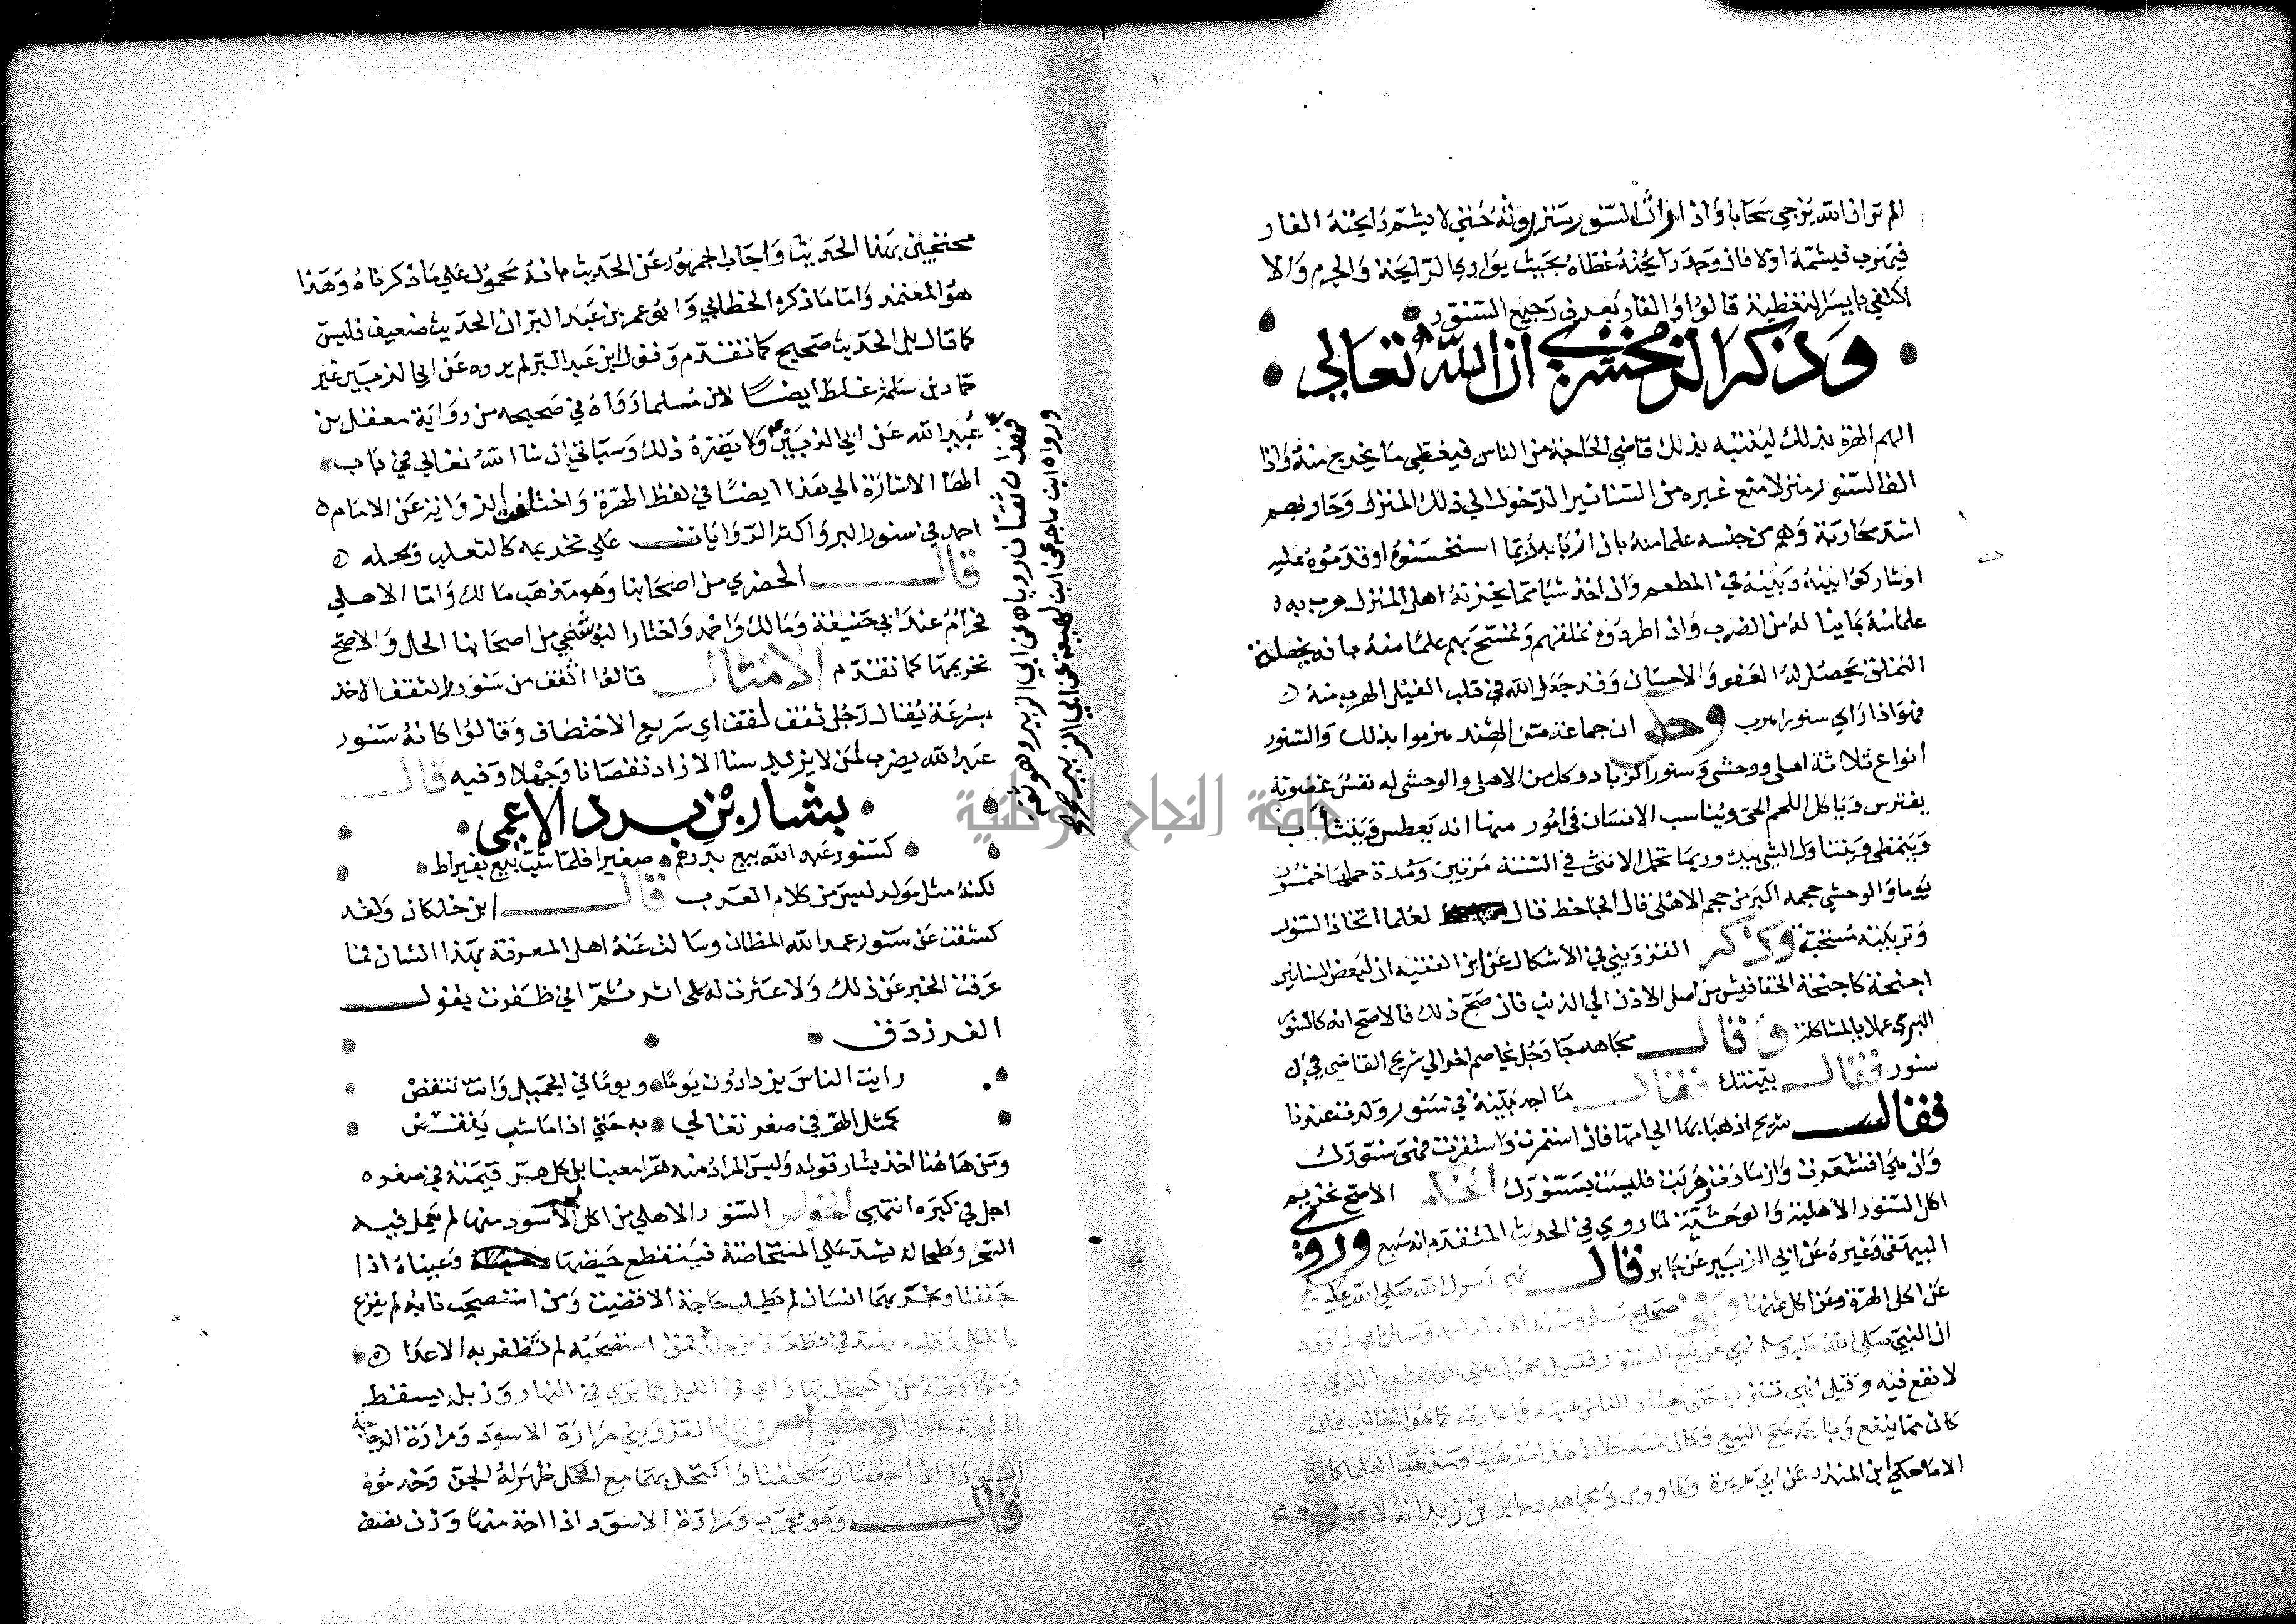 الم تر ان الله يزجي سحابا واذا راث السنور ستر روثه حتي لا يشتم رايحته الفار
فيهرب فيشمه اولا فان وجد رايحته غطاه بحيث يواري الرايحة والجرم والا
اكتفي بايسر التغطية قالوا والفار يعرف رجيع السنور
وذكر الزمخشري ان الله تعالي
الهم الهرة بذلك ليتنبه بذلك قاضي الحاجة من الناس فيغطي ما يخرج منه واذا
الف السنور منزلا منع غيره من السنانير الدخول الي ذلك المنزل وحاربهم
اشد محاربة وهم من جنسه علما منه بان اربابه ربما استحسنوه او قدموه عليه
او شاركوا بينه وبينه في المطعم وان اخذ شيا مما يخزنه اهل المنزل هرب به
علما منه بما يناله من الضرب واذا طردوه تملقهم وتمسح بهم علما منه بانه يخلصه
التملق يحصل له العفو والاحسان وقد جعل الله في قلب الفيل الهرب منه
فهو اذا راي سنورا هرب وحكي ان جماعة من الهند هزموا بذلك والسنور
انواع ثلاثة اهلي ووحشي وسنور الزباد وكل من الاهلي والوحشي له نفس غضوبة
يفترس وياكل اللحم الحي ويناسب الانسان في امور منها انه يعطس ويتثاب
ويتمطي ويتناول الشي بيده وربما تحمل الانثي في السنة مرتين ومدة حملها خمسون
يوما والوحشي حجمه اكبر من حجم الاهلي قال الجاحظ قال العلما اتخاذ السنور
وتربيته مستحبة وذكر القزويني في الاشكال عن ابن الفقيه ان لبعض السنانير
اجنحة كاجنحة الخفافيش من اصل الاذن الي الذنب فان صح ذلك فالاصح انه كالسنور
البري عملا بالمشاكلة وقال مجاهد جا رجل يخاصم اخر الي شريح القاضي في
سنور فقال بينتك فقال ما اجد بينة في سنور ولدت عندنا
فقال شريح اذهبا بها الي امها فان استمرت واستقرت فهي سنورك
وان هي اقشعرت وازبارت وهربت فليست بسنورك الحكم الاصح تحريم
اكل السنور الاهلية والوحشية لما روي في الحديث المتقدم انه سبع وروي
البيهقي وغيره عن ابي الزبير عن جابر قال نهي رسول الله صلي الله عليه
عن اكل الهرة وعن اكل ثمنها وفي صحيح مسلم ومسند الامام احمد وسنن ابي داوود
ان النبي صلي الله عليه وسلم نهي عن بيع السنور فقيل محمول علي الوحشي الذي
لا نفع فيه وقيل نهي تنزيه حتي يعتاد الناس هبته واعارته كما هو الغالب فان
كان مما ينفع وباعه صح البيع وكان ثمنه حلالا هذا مذهبنا ومذهب العلما كافة
الا ما حكي ابن المنذر عن ابي هريرة وطاووس ومجاهد وجابر بن زيد انه لا يجوز بيعه
محتجين
محتجين بهذا الحديث واجاب الجمهور عن الحديث بانه محمول علي ما ذكرناه وهذا
هو المعتمد واما ما ذكره الخطابي وابو عمر بن عبد البر ان الحديث ضعيف فليس
كما قال بل الحديث صحيح كما تقدم وقول ابن عبد البر لم يروه عن ابي الزبير غير
حماد بن سلمة غلط ايضا لان مسلما رواه في صحيحه من رواية معقل بن
عبيد الله عن ابي الزبير ولا يضره ذلك وسياتي ان شا الله تعالي في باب
الها الاشارة الي هذا ايضا في لفظ الهرة واختلفت الرواية عن الامام
احمد في سنور البر واكثر الروايات علي تحريمه كالثعلب ويحله
قال الحضري من اصحابنا وهو مذهب مالك واما الاهلي
فحرام عند ابي حنيفة ومالك واحمد واختار البوشنجي من اصحابنا الحل والاصح
تحريمها كما تقدم الامثال قالوا اثقف من سنور والثقف الاخذ
بسرعة يقال رجل ثقف لقف اي سريع الاختطاف وقالوا كانه سنور
عبد الله يضرب لمن لا يزيد سنا الا زاد نقصانا وجهلا وفيه قال
بشار بن برد الاعمي
كسنور عبد الله بيع بدرهم صغيرا فلما شب بيع بقيراط
لكنه مثل مولد ليس من كلام العرب قال ابن خلكان ولقد
كشفت عن سنور عبد الله المظان وسالت عنه اهل المعرفة بهذا الشان فما
عرفت الخبر عن ذلك ولا عثرت له علي اثر ثم اني ظفرت بقول
الفرزدق
رايت الناس يزدادون يوما ويوما في الجميل وانت تنقص
كمثل الهر في صغر تغالي به حتي اذا ما شب يرخص
ومن هاهنا اخذ بشار قوله وليس المراد منه هرا معينا بل كل هر قيمته في صغره
اجل في كبره انتهي الخواص السنور الاهلي من اكل الاسود منها لم يعمل فيه
السحر وطحاله يشد علي المستحاضة فينقطع حيضها وعيناه اذا
جففتا وتبخر بهما انسان لم يطلب حاجة الا قضيت ومن استصحب نابه لم يفزع
بالليل وقلبه يشد في قطعة من جلده فمن استصحبه لم تظفر به الاعدا
ومرارته من اكتحل بها راي في الليل كما يري في النهار وزبله يسقط
المشيمة بخورا وخواص القزويني مرارة الاسود ومرارة الدجاجة
السودا اذا جففتا وسحقتا واكتحل بهما مع الكحل ظهر له الجن وخدموه
قال وهو مجرب ومرارة الاسود اذا اخذ منها وزن نصف
فهذان ثقتان روياه عن ابي الزبير وهو ثقة
ورواه ابن ماجه عن ابن لهيعة عن ابي الزبير
جامعة النجاح الوطنية